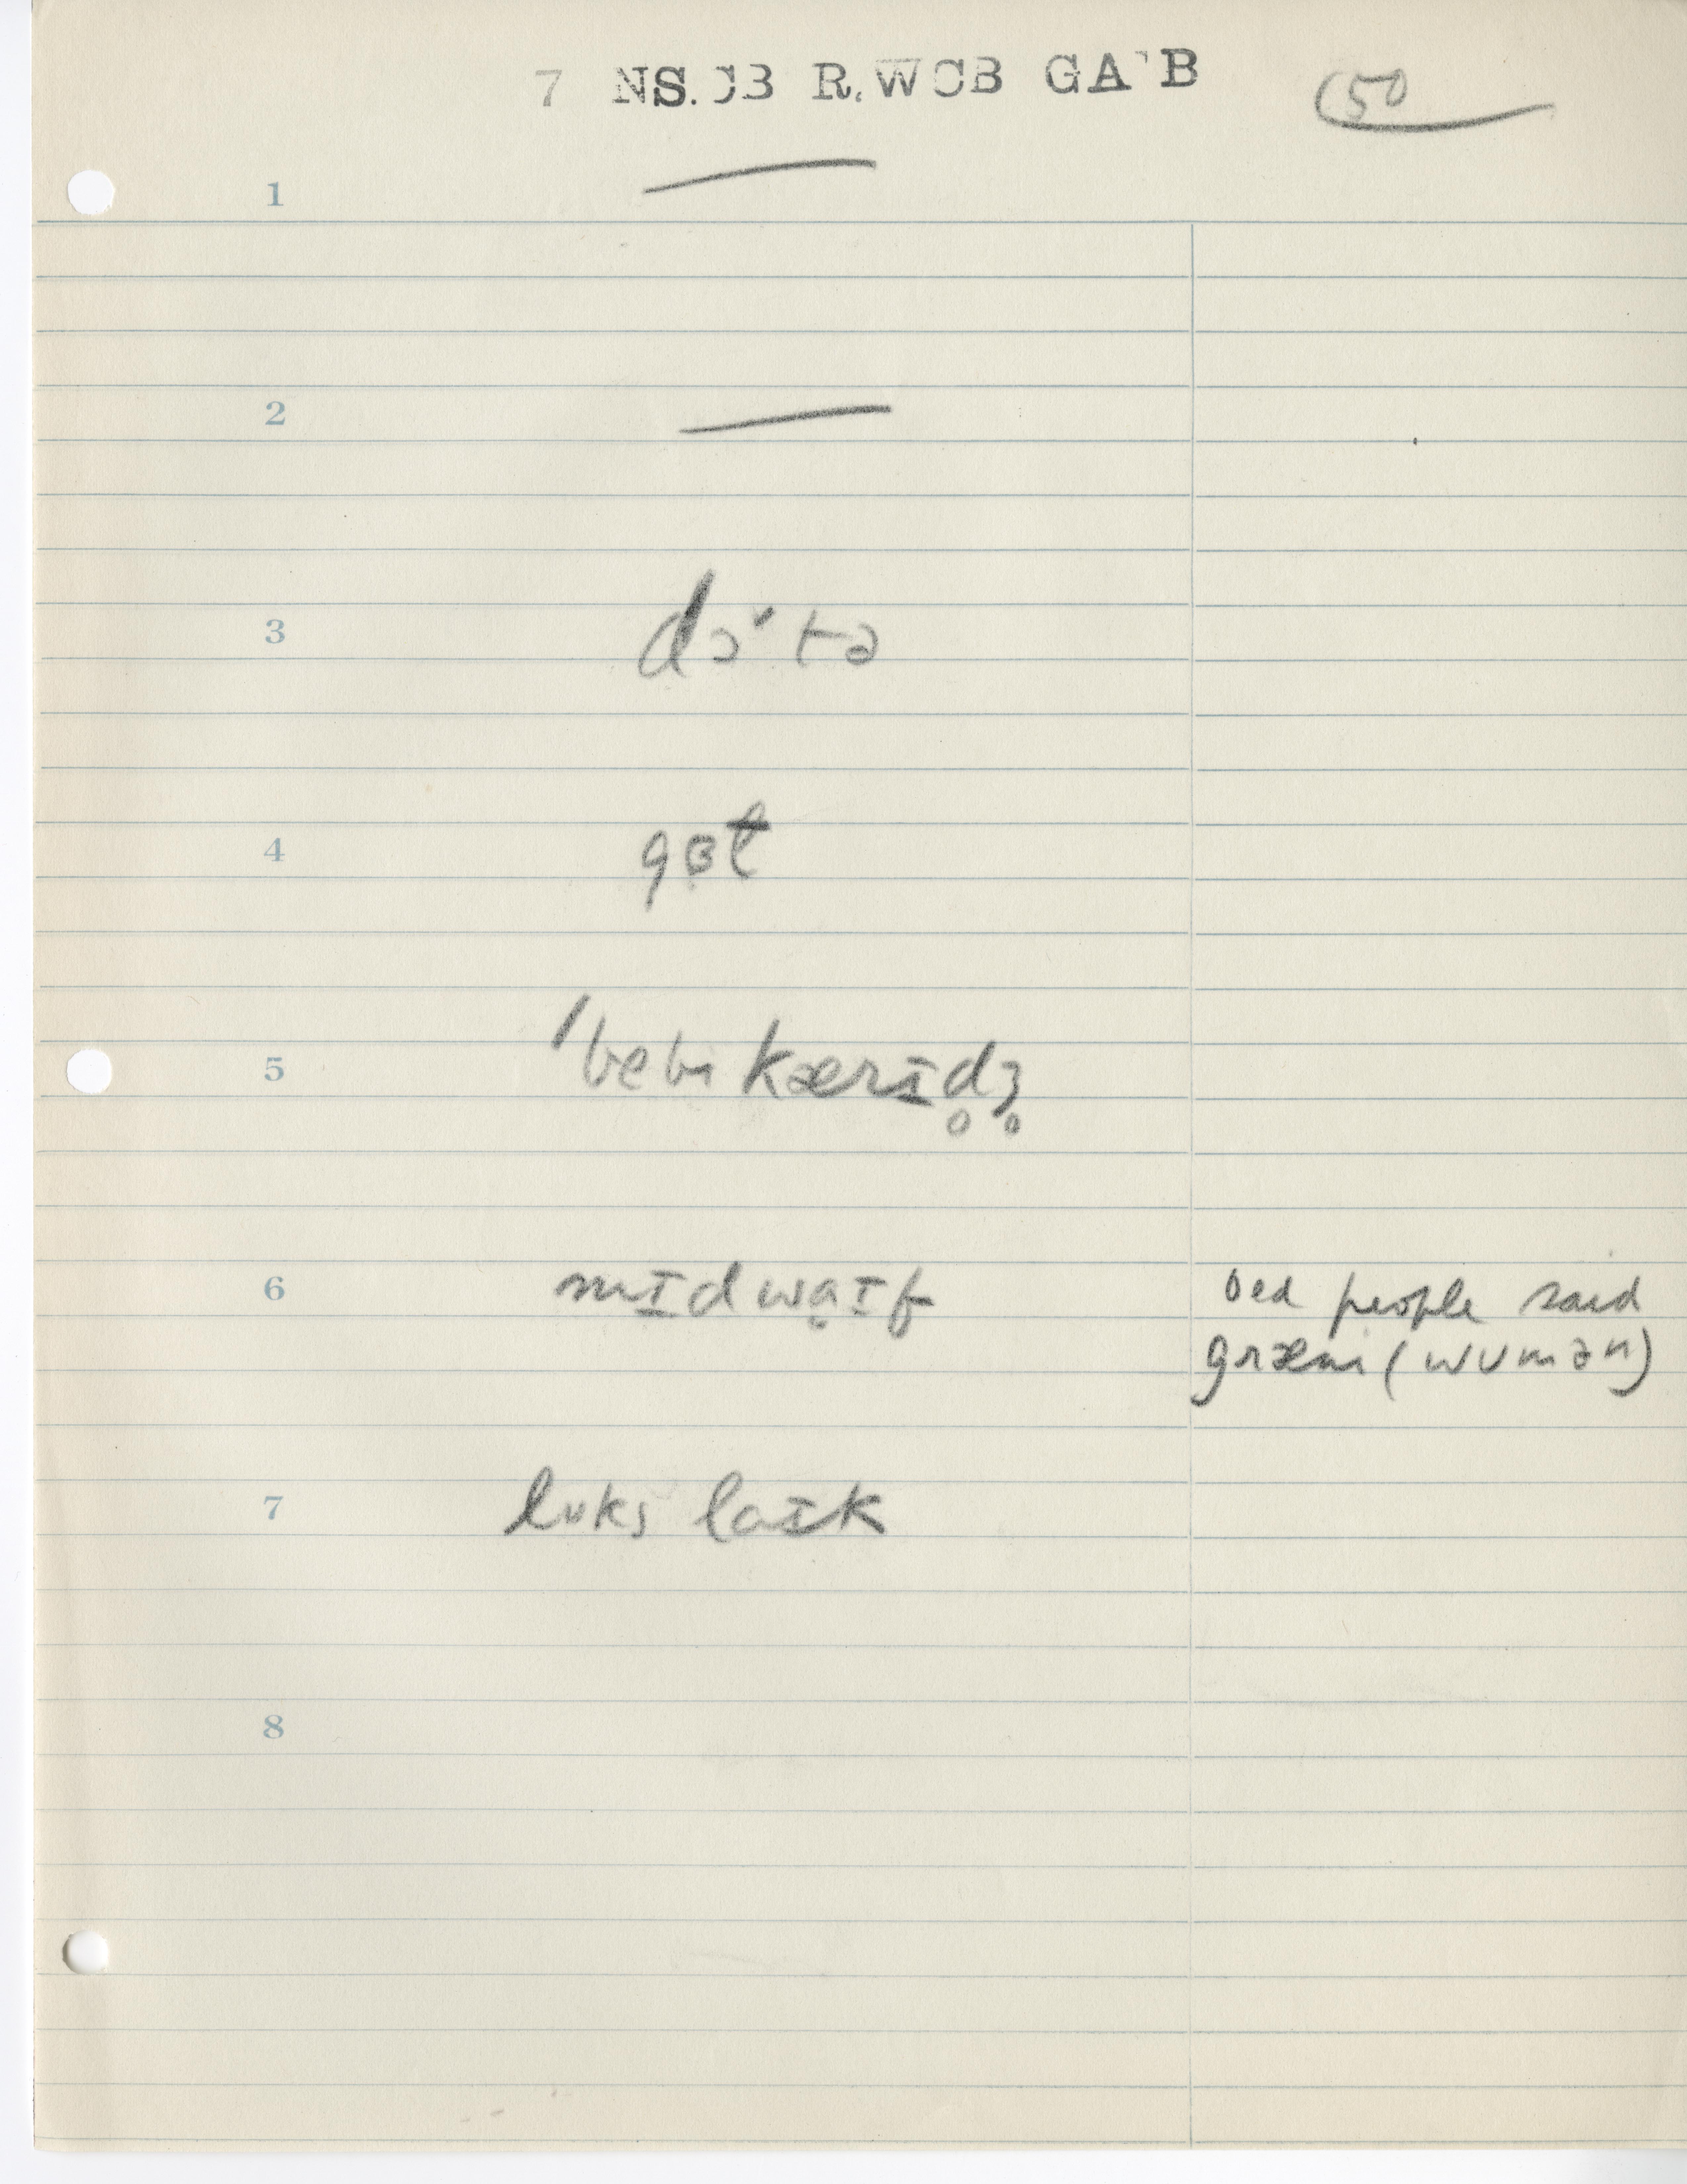 7 NS.CB R.WCB GA'B
50
1
2
3 dɔ˞tə
4 gɜt
5 ˈbebikærɪd̥ʒ̊
6 mɪdwa̤ɪf
old people said
græni (wumən)
7 luks laɪk
8